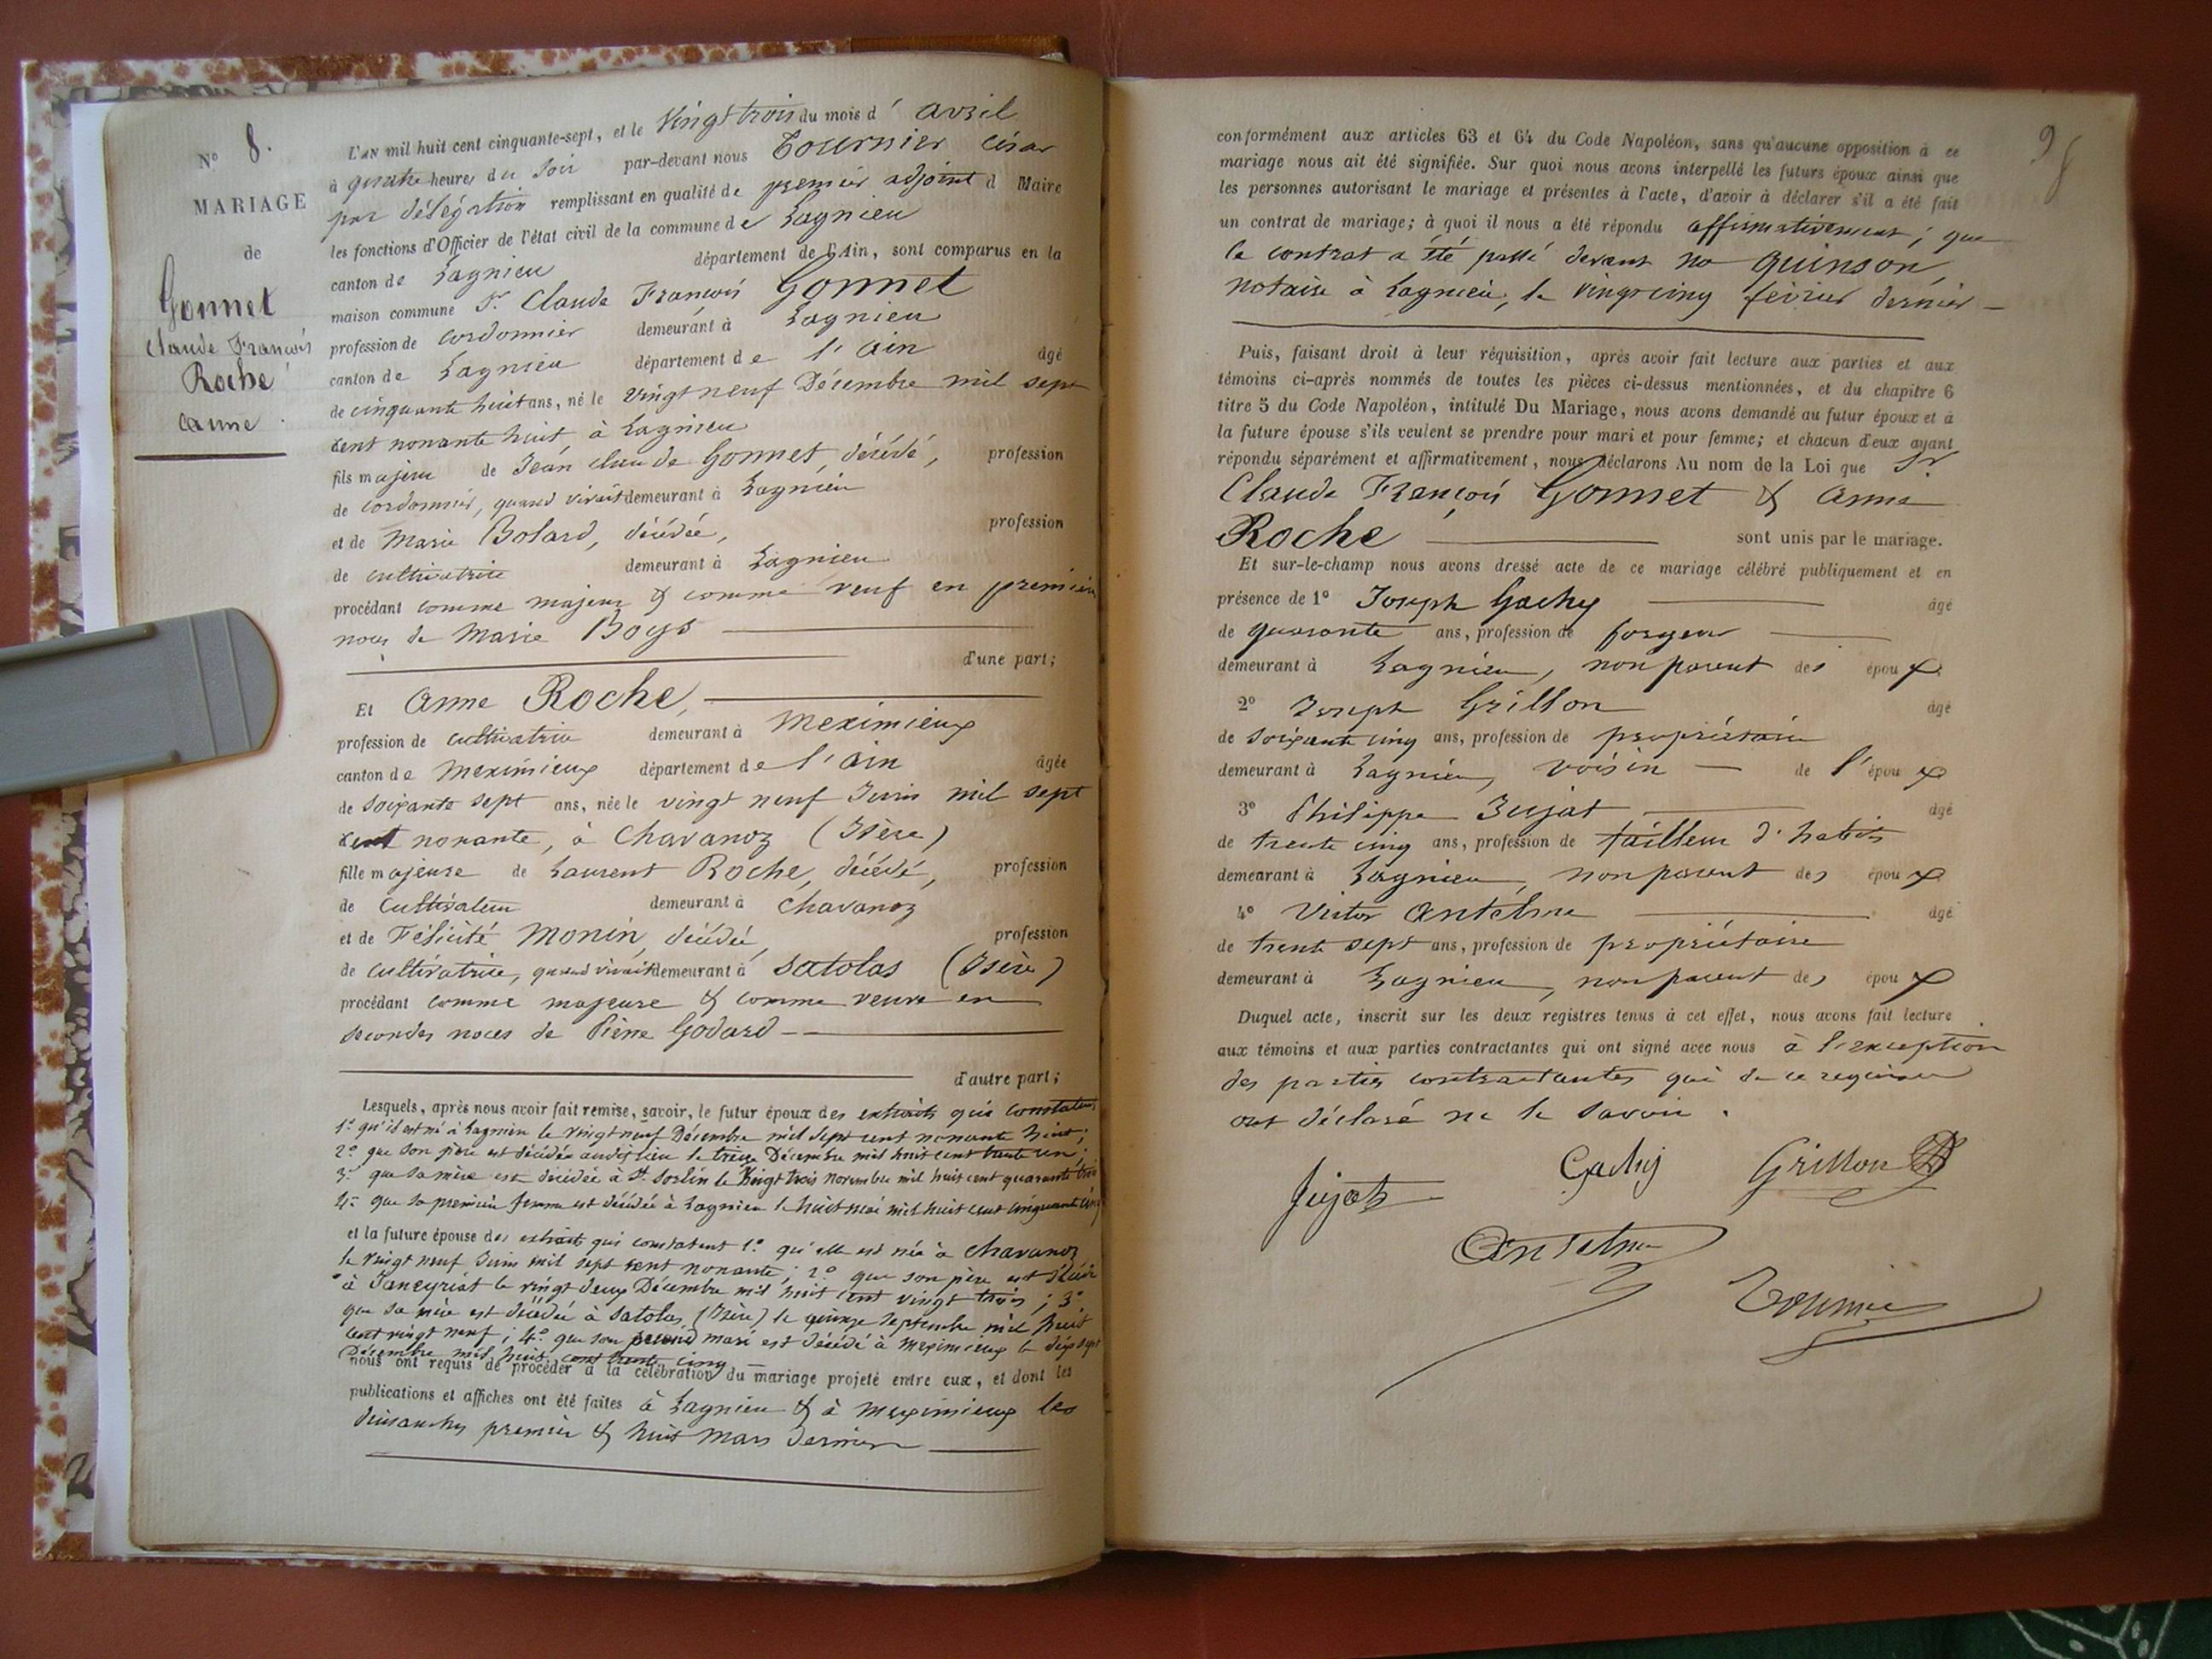 N° 8.
MARIAGE
de
Gonnet
Claude François
Roche
anne.
L'AN mil huit cent cinquante-sept, et le Vingt trois du mois d' avril
à quatre heures du Soir par-devant nous Tournier César
par délégation remplissant en qualité de premier adjoint d Maire
les fonctions d'Officier de l'état civil de la commune de Lagnieu
canton de Lagnieu département de l'Ain, sont comparus en la
maison commune Sr. Claude François Gonnet
profession de cordonnier demeurant à Lagnieu
canton de Lagnieu département de l'Ain âgé
de cinquante huit ans, né le vingt neuf Décembre mil sept
cent nonante huit à Lagnieu
fils majeur de Jean Claude Gonnet, décédé, profession
de cordonnier, quand vivait demeurant à Lagnieu
et de Marie Bolard, décédée, profession
de cultivatrice demeurant à Lagnieu
procédant comme majeur & comme veuf en premières
noces de Marie Boys
d'une part;
Et Anne Roche,
profession de cultivatrice demeurant à Meximieux
canton de Meximieux département de l'Ain âgée
de soixante sept ans, née le vingt neuf Juin mil sept
cent nonante, à Chavanoz (Isère)
fille majeure de Laurent Roche, décédé, profession
de Cultivateur demeurant à Chavanoz
et de Félicité Monin, décédée, profession
de cultivatrice, quand vivait demeurant à Satolas (Isère)
procédant comme majeure & comme veuve en
secondes noces de Pierre Godard
d'autre part;
Lesquels, après nous avoir fait remise, savoir, le futur époux des extraits qui constatent
1.° qu'il est né à Lagnieu le vingt neuf Décembre mil sept cent nonante huit;
2.° que son père est décédé audit lieu le treize Décembre mil huit cent trente un;
3.° que sa mère est décédée à St. Sorlin le Vingt trois novembre mil huit cent quarante trois
4.° que sa première femme est décédée à Lagnieu le huit mai mil huit cent cinquante cinq
et la future épouse des extraits qui constatent 1.° qu'elle est née à Chavanoz
le vingt neuf Juin mil sept cent nonante; 2.° que son père est décédé
à Janeyriat le vingt deux Décembre mil huit cent vingt trois; 3.°
que sa mère est décédée à Satolas (Isère) le quinze Septembre mil huit
cent vingt neuf; 4.° que son second mari est décédé à Meximieux le dix sept
Décembre mil huit cent trente cinq
nous ont requis de procéder à la célébration du mariage projeté entre eux, et dont les
publications et affiches ont été faites à Lagnieu & à Meximieux les
dimanches premier & huit Mars dernier
9
conformément aux articles 63 et 64 du Code Napoléon, sans qu'aucune opposition à ce
mariage nous ait été signifiée. Sur quoi nous avons interpellé les futurs époux ainsi que
les personnes autorisant le mariage et présentes à l'acte, d'avoir à déclarer s'il a été fait
un contrat de mariage; à quoi il nous a été répondu affirmativement; que
le contrat a été passé devant Me Quinson,
notaire à Lagnieu, le vingt cinq février dernier
Puis, faisant droit à leur réquisition, après avoir fait lecture aux parties et aux
témoins ci-après nommés de toutes les pièces ci-dessus mentionnées, et du chapitre 6
titre 5 du Code Napoléon, intitulé Du Mariage, nous avons demandé au futur époux et à
la future épouse s'ils veulent se prendre pour mari et pour femme; et chacun d'eux ayant
répondu séparément et affirmativement, nous déclarons Au nom de la Loi que Sr.
Claude François Gonnet & Anne
Roche sont unis par le mariage.
Et sur-le-champ nous avons dressé acte de ce mariage célébré publiquement et en
présence de 1° Joseph Gachy âgé
de quarante ans, profession de forgeur
demeurant à Lagnieu, non parent des époux
2° Joseph Grillon âgé
de soixante cinq ans, profession de propriétaire
demeurant à Lagnieu, voisin de l'époux
3° Philippe Jujat âgé
de trente cinq ans, profession de tailleur d'habits
demeurant à Lagnieu, non parent des époux
4° Victor Antelme âgé
de trente sept ans, profession de propriétaire
demeurant à Lagnieu, non parent des époux
Duquel acte, inscrit sur les deux registres tenus à cet effet, nous avons fait lecture
aux témoins et aux parties contractantes qui ont signé avec nous à l'exception
des parties contractantes qui de ce requises
ont déclaré ne le savoir.
Jujat Gachy Grillon
Antelme
Tournier